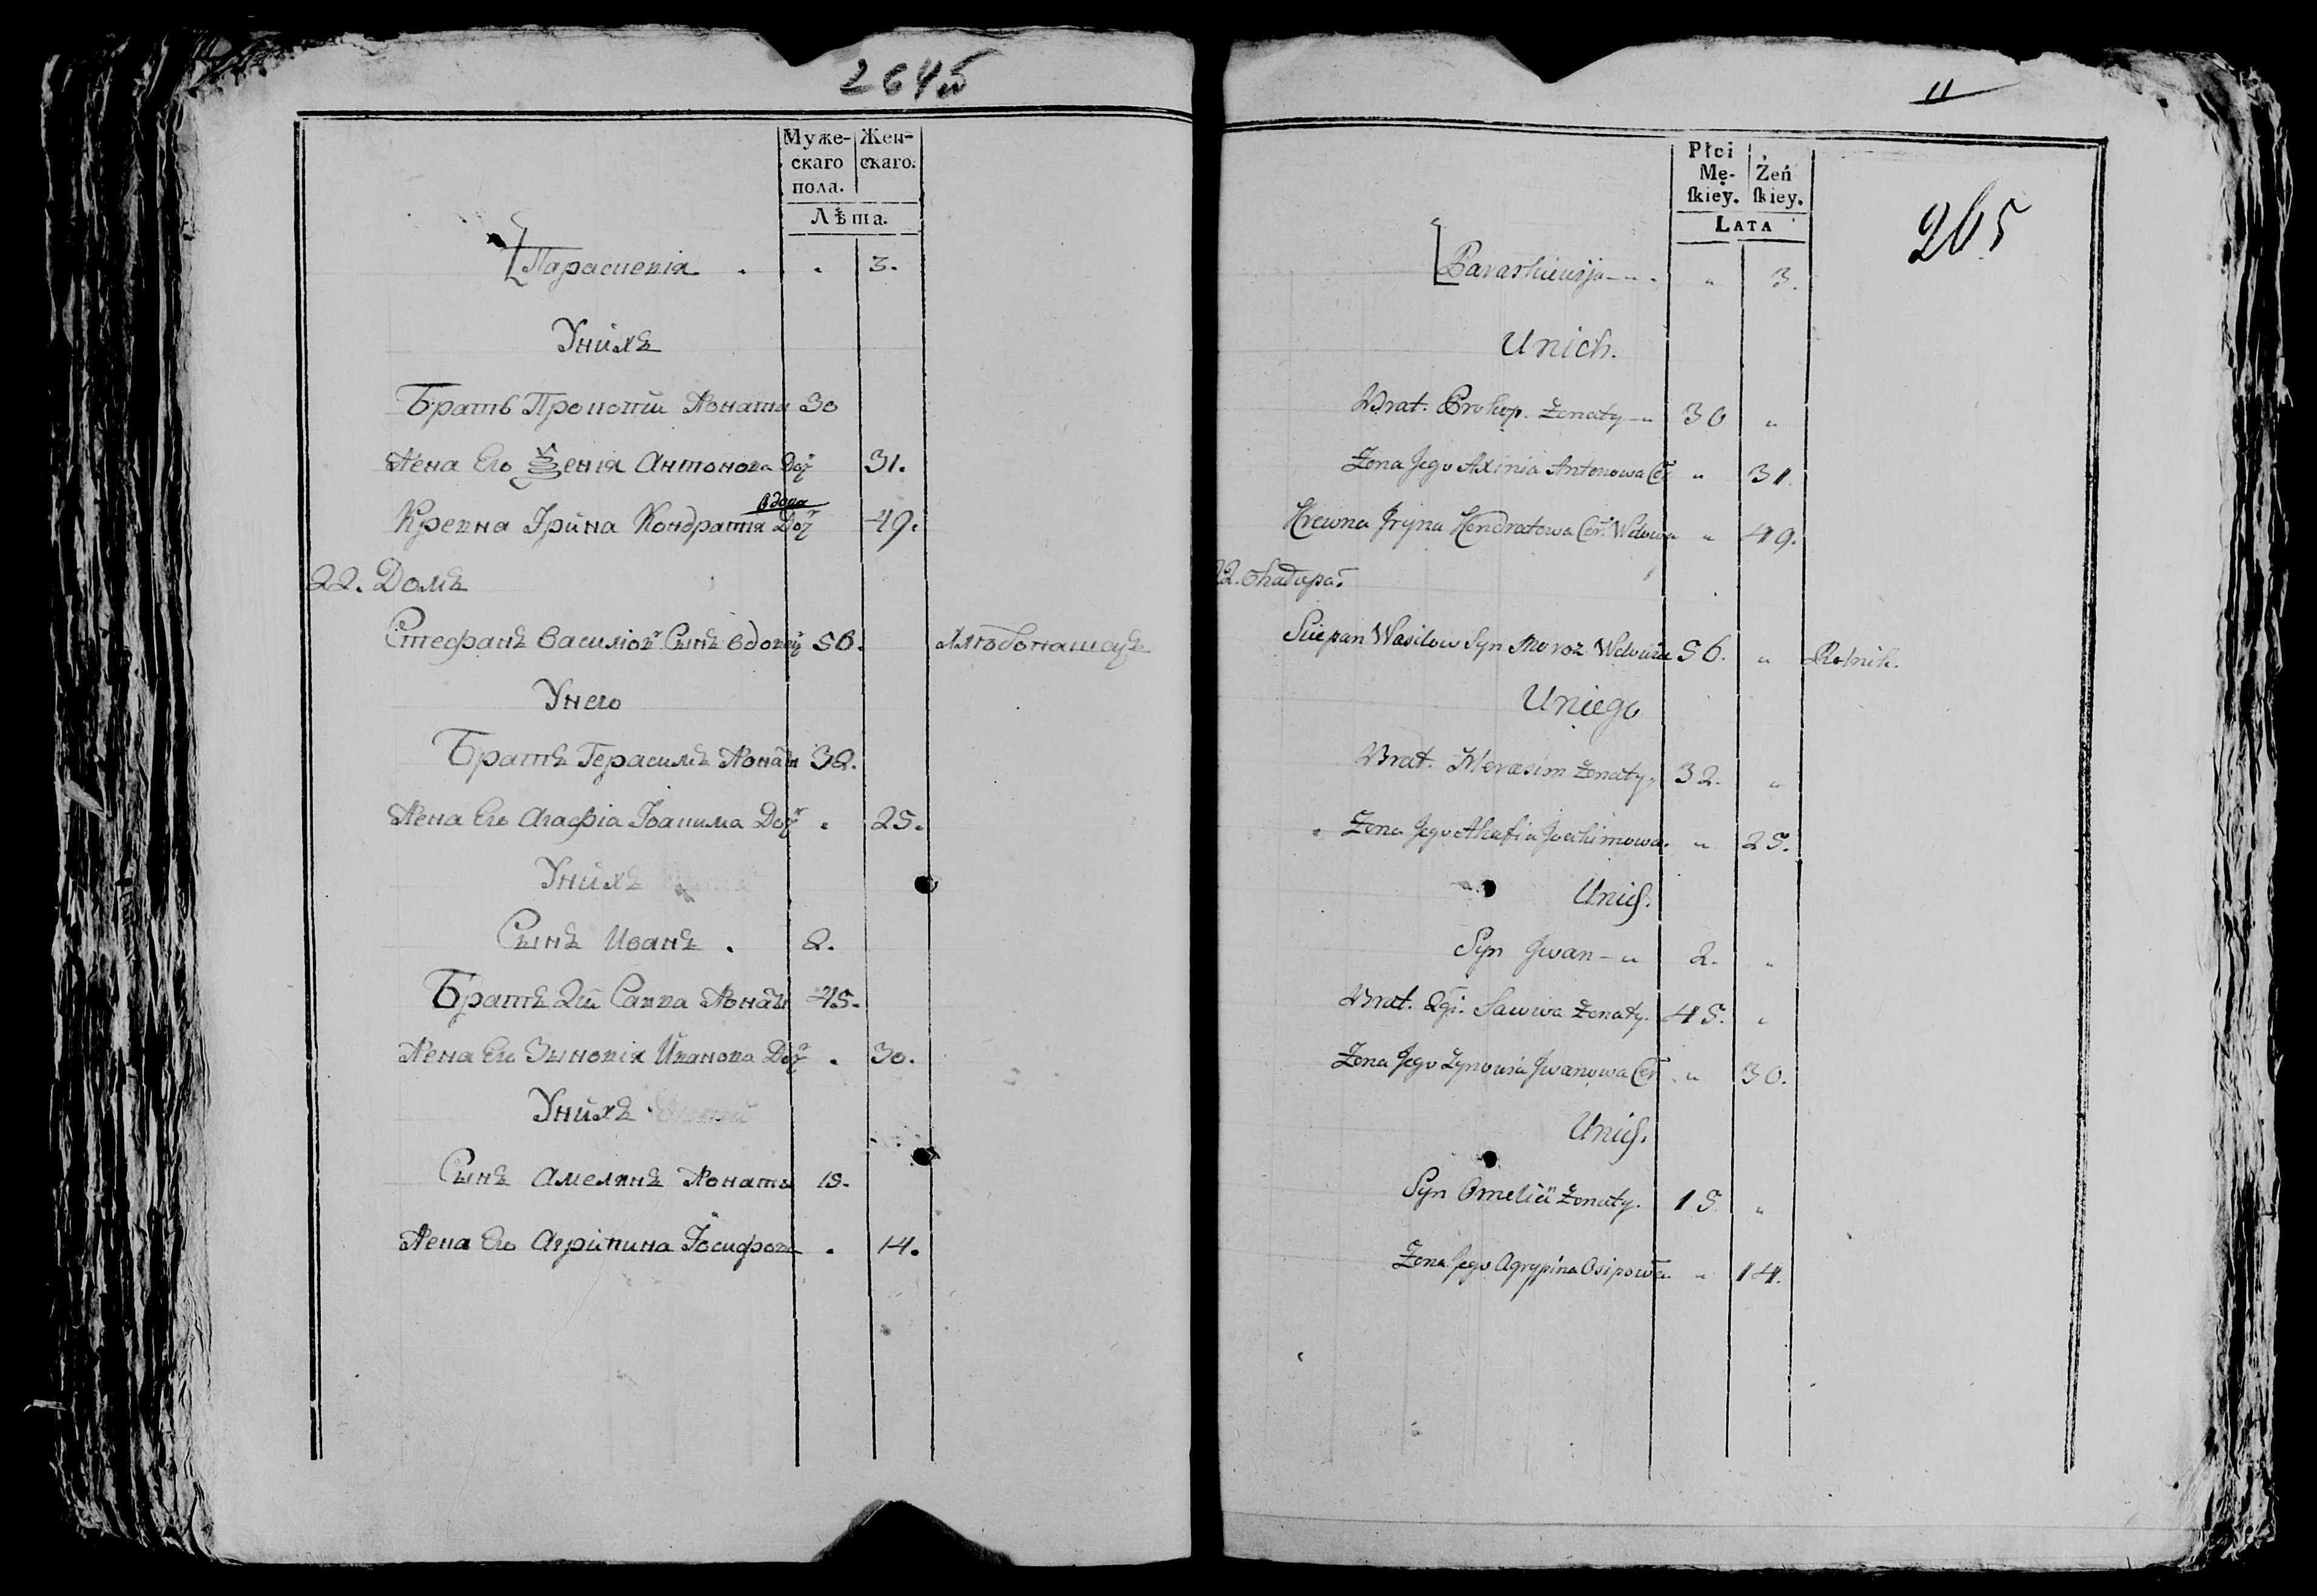 264б
Муже- Жен-
скаго скаго.
пола.
Лѣта.
Параскевія . . 3.
Унихъ
Братъ Прокопій Жонати 30
Жена Его Ѯенія Антонова Доч 31.
вдова
Кревна Ірина Кондратія Доч 49.
22. Домъ
Стефанъ Василіов Сынъ вдовец 56. Хлѣбопашецъ
Унего
Братъ Герасимъ Жонати 32.
Жена Его Агафіа Іоакима Доч . 25.
Унихъ
Сынъ Иванъ . 2.
Братъ 2й Савва Жонати 45.
Жена Его Зыновія Иванова Доч . 30.
Унихъ
Сынъ Амелянъ Жонаты 15.
Жена Его Агрипина Іосифова . 14.
11
Płci
Mę- Żeń
ſkiey. ſkiey.
LATA
265
Paraskiewija — „ . „ 3.
Unich.
Brat. Prokop. Żonaty — „ 30 „
Żona Jego Axinia Antonowa Cor „ 31.
Krewna Jryna Kondratowa Cor. Wdowa „ 49.
22. Chałupa.
Sciepan Wasilow Syn Moroz Wdowiec 56. „ Rolnik.
Uniego
Brat. Herasim Żonaty „ 32. „
Żona Jego Ahafia Joachimowa. „ 25.
Unich.
Syn Jwan — „ 2. „
Brat. 2gi. Sawwa Żonaty. 45. „
Żona Jego Zynowia Jwanowa Cor. „ 30.
Unich.
Syn Omelian Żonaty. 15. „
Żona Jego Agrypina Osipowa. „ 14.